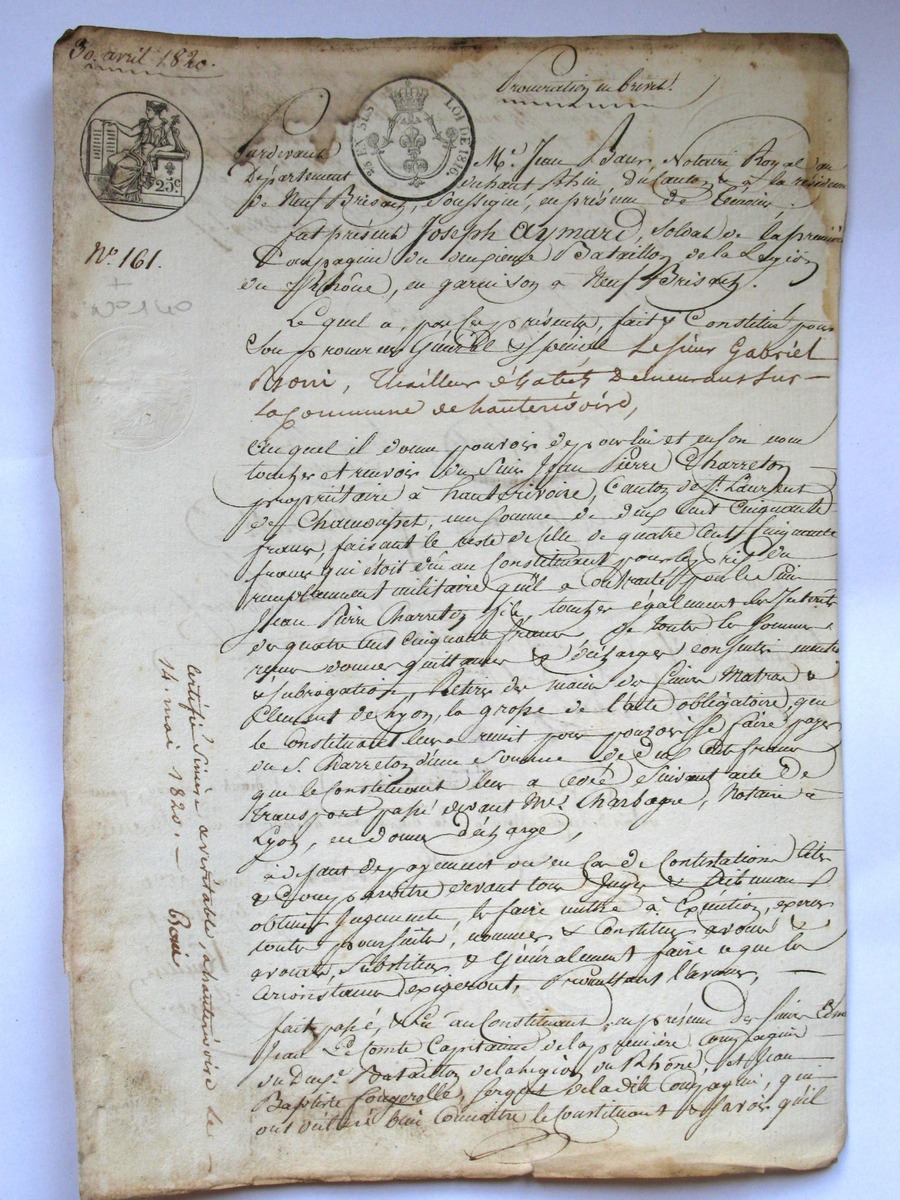 30 avril 1820.
Procuration en brevet.
25 ET SES
LOI DE 1816.
25c
No. 161.
Pardevant Me. Jean Baur, Notaire Royal au
Département du haut Rhin, du Canton & à la résidence
de Neuf Brisach, Soussigné, en présence de témoins.
fut présent Joseph Aymard, Soldat de la première
Compagnie du deuxieme Bataillon de la Légion
du Rhône, en garnison à Neuf Brisach.
Lequel a, par ces présentes, fait & Constitué pour
Son procureur Général & Spécial le sieur Gabriel
Boni, tailleur d'habits Demeurant sur
la Commune de hauterivoire,
Auquel il donne pouvoir de pour lui et en son nom
toucher et recevoir du Sieur Jean Pierre Charreton
propriétaire à hauterivoire, Canton de St. Laurent
de Chamousset, une somme de deux cent Cinquante
francs faisant le reste de celle de quatre cent Cinquante
francs qui étoit dûe au Constituant pour le prix du
remplacement militaire qu'il a contracté pour le Sieur
Jean Pierre Charreton fils, toucher également les Intérêts
de quatre cent Cinquante francs, de toute les sommes
reçues donner quittances & décharges consentir mention
& subrogation, Retirer des mains des Sieurs Matrod &
Clement de Lyon, la grosse de l'acte obligatoire, que
le Constituant leur a remit pour pouvoir se faire payer
du S. Charreton d'une Somme de deux cent francs
que le Constituant leur a cédé suivant acte de
transport passé devant Me. Charbogne, Notaire à
Lyon, en donner décharge,
à defaut de payement ou en Cas de Contestation Citer
& Comparoitre devant tous Juges & Tribunaux
obtenir Jugements, les faire mettre à Exécution, exercer
toute poursuite, nommer & Constituer avoués &
avocats, Substituer & Généralement faire ce que les
Circonstances exigeront, Promettant l'avouer,
fait, passé, & Lû au Constituant, en présence des Sieurs
Jean Le Comte Capitaine de la première Compagnie
du deuxe. Bataillon de la Légion du Rhône, et Jean
Baptiste Fougerolle, Sergent de la dite Compagnie, qui
ont déclaré bien connaître le Constituant & savoir qu'il
Certifié sincère & véritable, à hauterivoire le
14. mai 1820. Boni